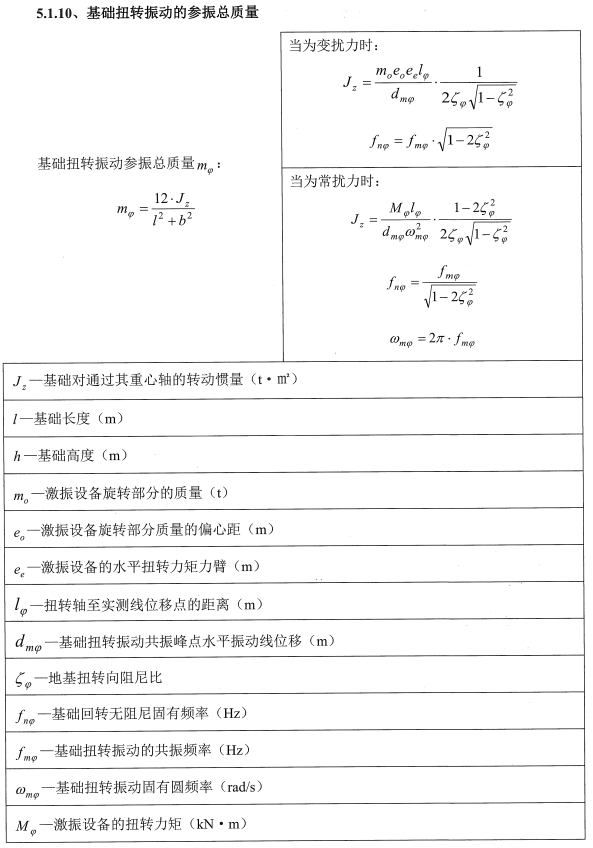 5.1.10、基础扭转振动的参振总质量
基础扭转振动参振总质量 mφ：
mφ = 12·Jz / (l² + b²)
当为变扰力时：
Jz = (mₒeₒeₑlφ / dmφ) · 1 / (2ζφ√(1−ζφ²))
fnφ = fmφ · √(1−2ζφ²)
当为常扰力时：
Jz = (Mφlφ / (dmφωmφ²)) · (1−2ζφ²) / (2ζφ√(1−ζφ²))
fnφ = fmφ / √(1−2ζφ²)
ωmφ = 2π · fmφ
Jz—基础对通过其重心轴的转动惯量（t·㎡）
l—基础长度（m）
h—基础高度（m）
mₒ—激振设备旋转部分的质量（t）
eₒ—激振设备旋转部分质量的偏心距（m）
eₑ—激振设备的水平扭转力矩力臂（m）
lφ—扭转轴至实测线位移点的距离（m）
dmφ—基础扭转振动共振峰点水平振动线位移（m）
ζφ—地基扭转向阻尼比
fnφ—基础回转无阻尼固有频率（Hz）
fmφ—基础扭转振动的共振频率（Hz）
ωmφ—基础扭转振动固有圆频率（rad/s）
Mφ—激振设备的扭转力矩（kN·m）